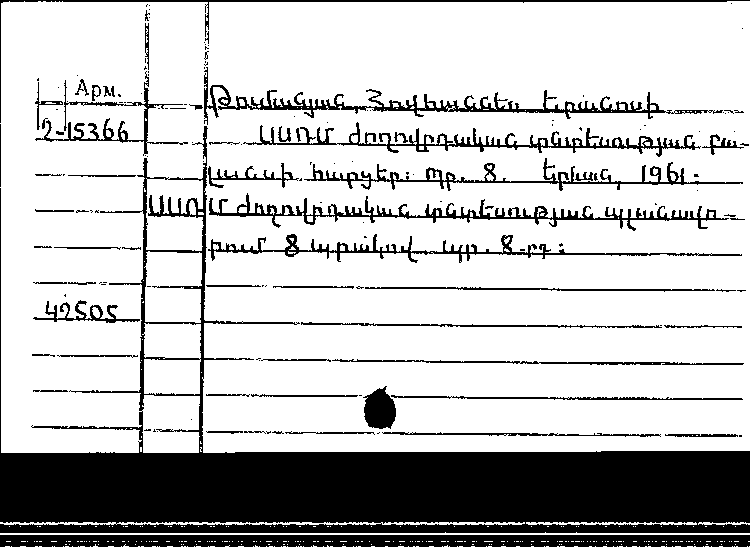 Арм.
Թումանյան, Հովհաննես Երանոսի
2-15366
ՍՍՌՄ ժողովրդական տնտեսության բա-
լանսի հարցեր: Պր. 8. Երևան, 1961:
ՍՍՌՄ ժողովրդական տնտեսության պլանավո-
րում 8 պրակով. պր. 8-րդ:
42505